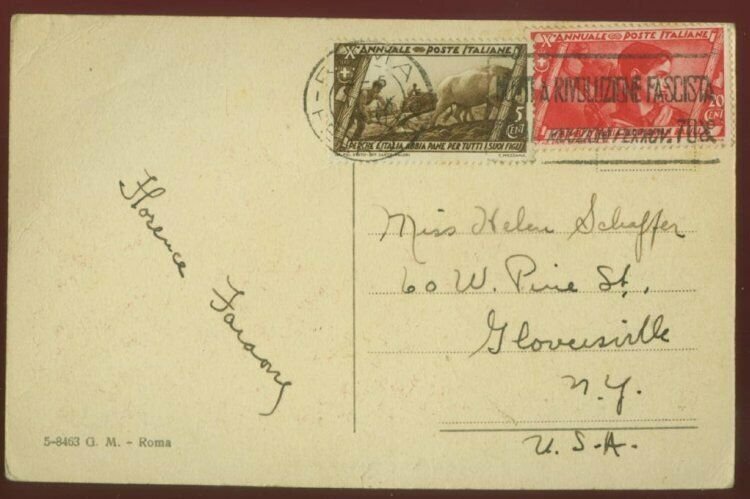 X° ANNUALE POSTE ITALIANE
5 CENT
PERCHE L'ITALIA ABBIA PANE PER TUTTI I SUOI FIGLI
C. MEZZANA
X° ANNUALE POSTE ITALIANE
20 CENT
ROMA
A RIVOLUZIONE FASCISTA
FERROV. 70%
Miss Helen Schaffer
60 W. Pine St,
Gloversville
N.Y.
U.S.A.
Florence
5-8463 G. M. - Roma